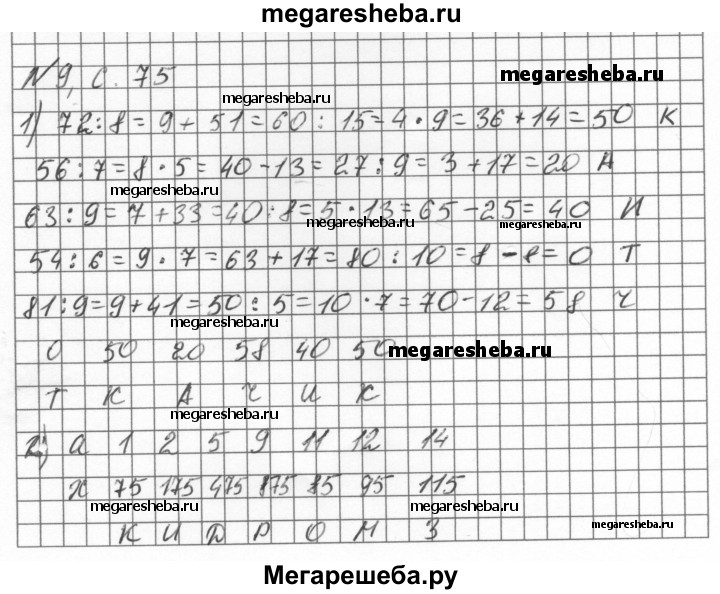 megaresheba.ru
№ 9, с. 75
megaresheba.ru
megaresheba.ru
1) 72:8=9+51=60:15=4·9=36+14=50 К
56:7=8·5=40-13=27:9=3+17=20 А
megaresheba.ru
63:9=7+33=40:8=5·13=65-25=40 И
megaresheba.ru
54:6=9·7=63+17=80:10=8-8=0 Т
81:9=9+41=50:5=10·7=70-12=58 Ч
megaresheba.ru
0 50 20 58 40 50
megaresheba.ru
Т К А Ч И К
megaresheba.ru
2) а 1 2 5 9 11 12 14
х 75 175 475 875 85 95 115
megaresheba.ru
megaresheba.ru
К И Д Р О М З
megaresheba.ru
Мегарешеба.ру